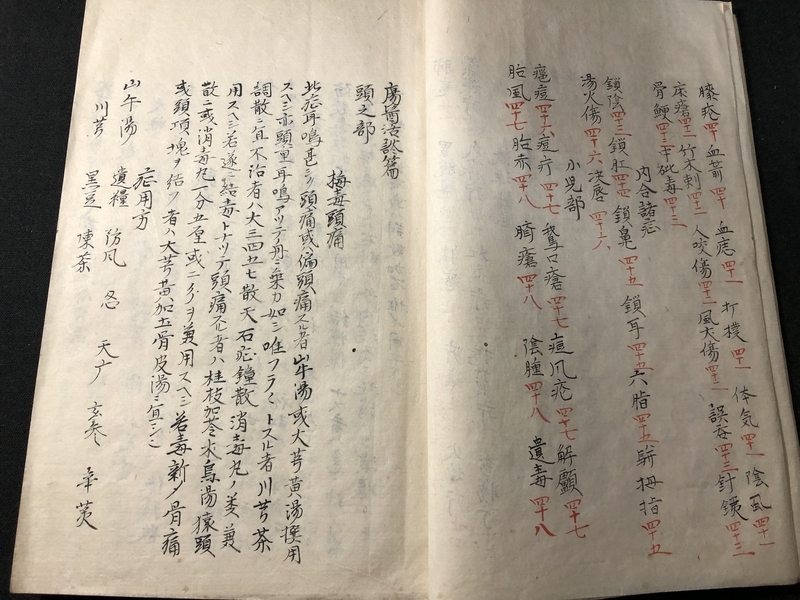 臁疮 四十 血箭 四十 血痣 四十一 打撲 四十一 体気 四十一 陰虱 四十一
床瘡 四十二 竹木刺 四十二 人咬傷 四十二 風犬傷 四十二 誤吞 四十三 針鉄 四十三
骨鯁 四十三 中砒毒 四十三
内合諸症
鎖陰 四十三 鎖肛 四十四 鎖鼻 四十五 鎖耳 四十五 六脂 四十五 駢拇指 四十五
湯火傷 四十六 決唇 四十六
小児部
痘 四十六 痘疔 四十七 鵞口瘡 四十七 痘爪疮 四十七 解顱 四十七
胎風 四十七 胎赤 四十八 臍瘡 四十八 陰腫 四十八 遺毒 四十八
瘍醫活談篇
頭之部
梅毒頭痛
此症耳鳴甚シク頭痛或偏頭痛スル者山牛湯或大芎黄湯撰用
スヘシ亦頭重耳鳴アリテ舟乗カ如シ唯フラ〱トスル者川芎茶
調散ニ宜不治者ハ大三四五七散天石症鐘散消毒丸ノ類兼
用スヘシ若遂ニ結毒トナリテ頭痛スル者ハ桂枝加苓朮烏湯猿頭
散ニ或消毒丸一分五厘或二分ヲ兼用スヘシ若毒新ノ骨痛
或頭項塊ヲ結フ者ハ大芎黄加土骨皮湯ニ宜シ
症用方
山牛湯 遺糧 防風 忍 天广 玄参 華茇
川芎 黒豆 陳茶